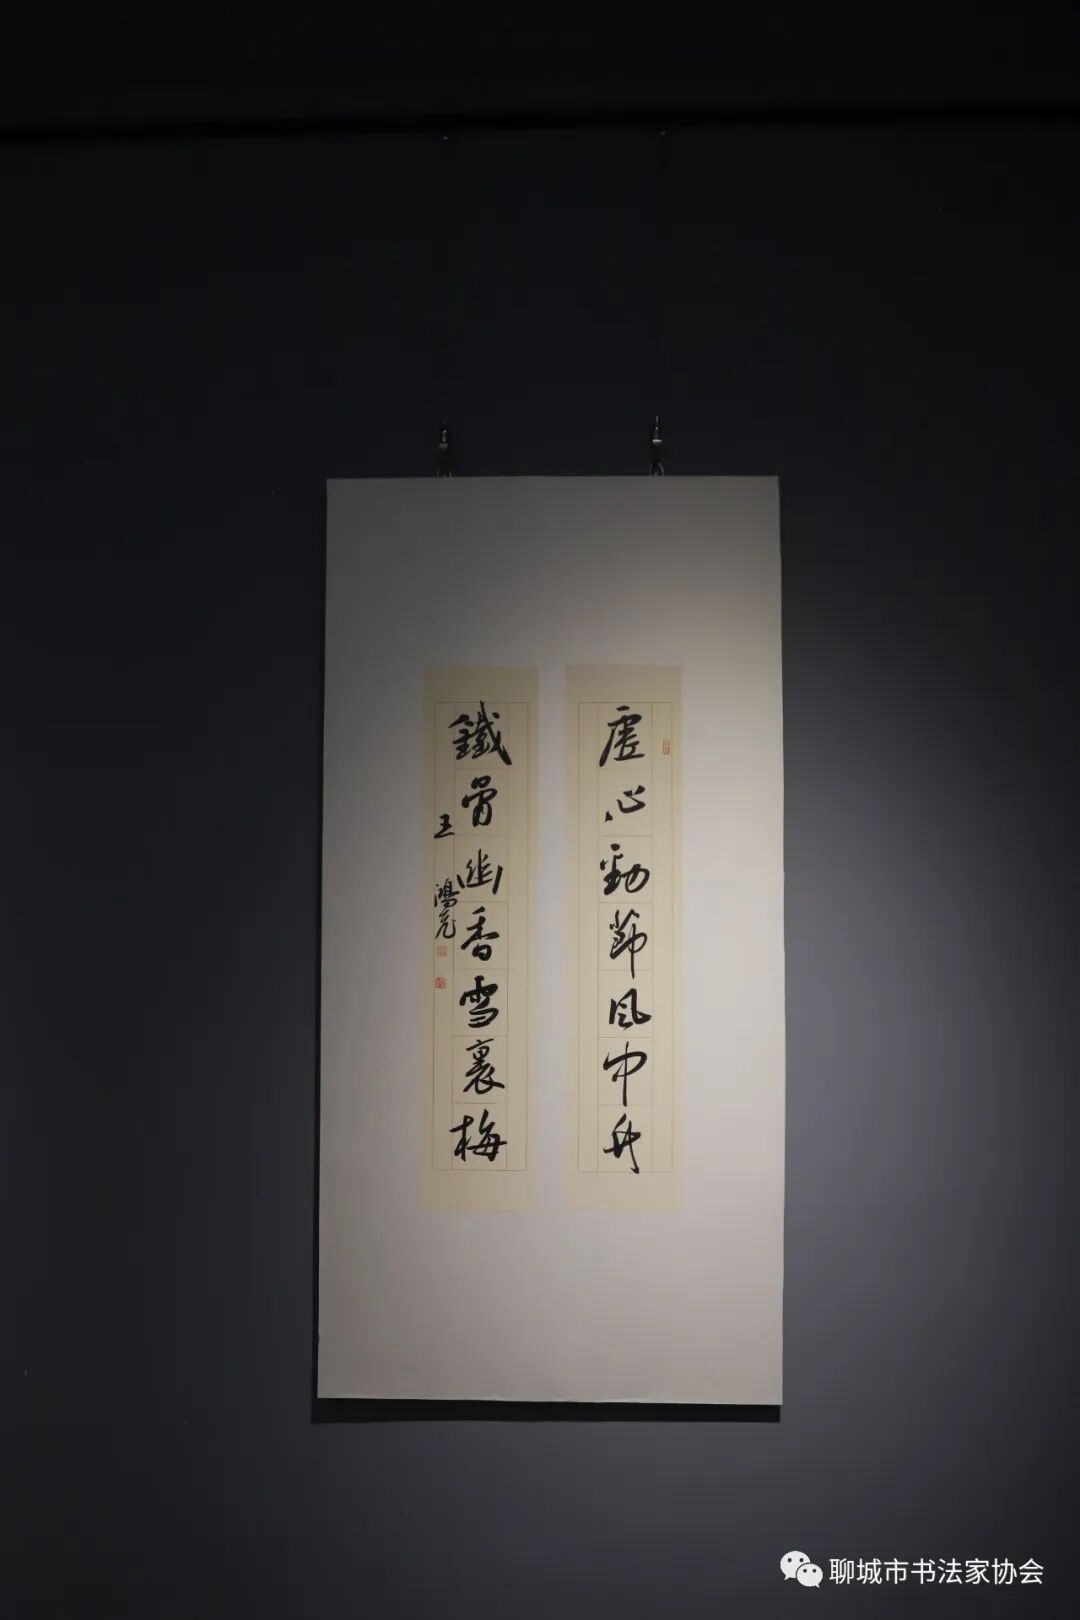 虚心勁節風中竹
鐵骨幽香雪裏梅
王鴻飛
聊城市书法家协会